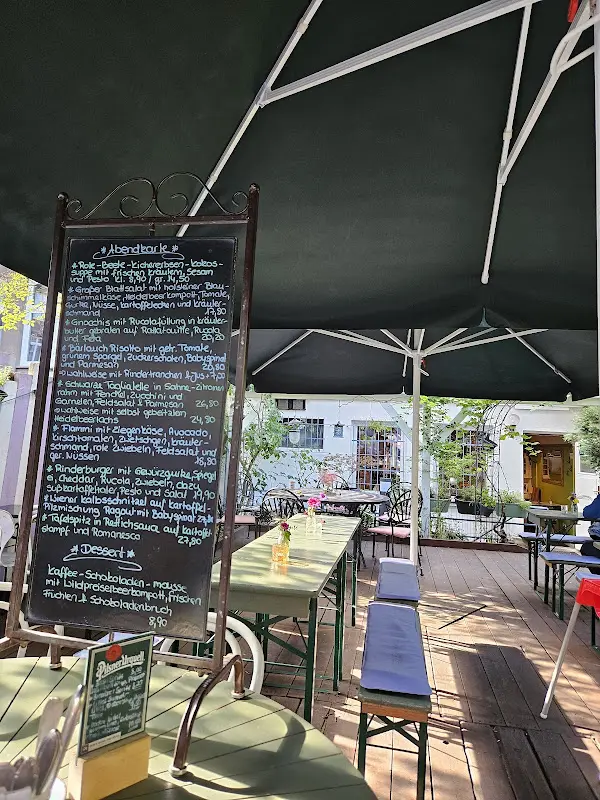 * Abendkarte *
* Rote-Beete-Kichererbsen-Kokos-
suppe mit frischen Kräutern, Sesam
und Pesto kl. 8,90 / gr. 14,50
* Großer Blattsalat mit Holsteiner Blau-
schimmelkäse, Heidelbeerkompott, Tomate,
Gurke, Nüsse, Kartoffelecken und Kräuter-
schmand 17,80
* Gnocchis mit Rucolafüllung in Kräuter-
butter gebraten auf Ratatouille, Rucola
und Feta 20,20
* Bärlauch Risotto mit getr. Tomate,
grünem Spargel, Zuckerschoten, Babyspinat
und Parmesan 20,80
* wahlweise mit Rindertranchen & Jus +7,00
* Schwarze Tagliatelle in Sahne-Zitronen
rahm mit Fenchel, Zucchini und
Garnelen, Feldsalat & Parmesan 26,80
* wahlweise mit selbst gebeiztem
Lachs 24,80
* Flammi mit Ziegenkäse, Avocado,
Kirschtomaten, Zwetschgen, Kräuter-
schmand, rote Zwiebeln, Feldsalat und
ger. Nüssen 18,80
* Rinderburger mit Gewürzgurke, Spiegel
ei, Cheddar, Rucola, Zwiebel, dazu
Süßkartoffeln, Pesto und Salat 19,90
* Wiener Kalbsschnitzel auf Kartoffel-
Pilzmischung, Ragout mit Babyspinat
* Tafelspitz in Rettichsauce auf Kartoffel
stampf und Romanesco 24,80
* Dessert *
Kaffee-Schokoladen-mousse
mit Wildpreiselbeerkompott, frischen
Früchten & Schokoladenbruch
8,90
Pilsner Urquell